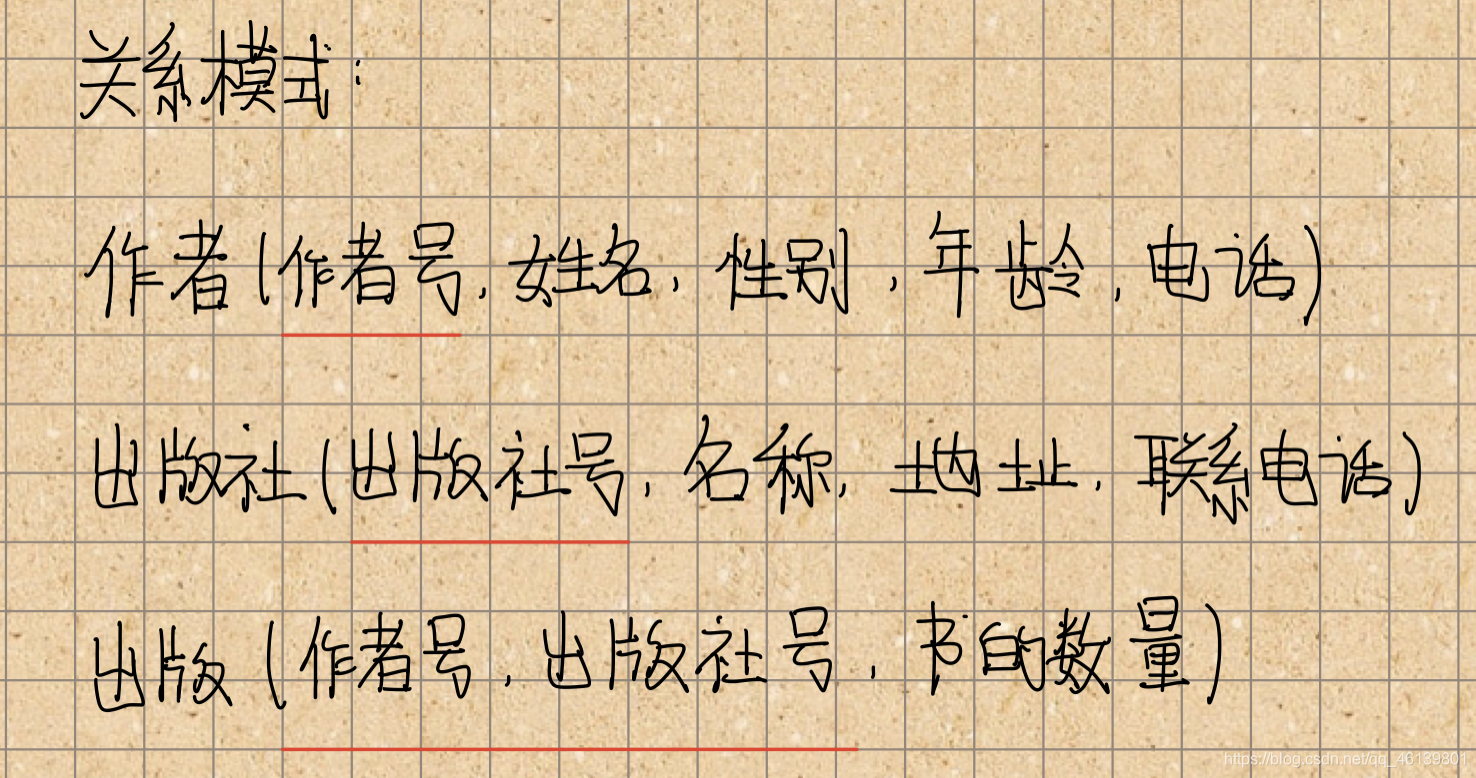 关系模式:
作者(作者号, 姓名, 性别, 年龄, 电话)
出版社(出版社号, 名称, 地址, 联系电话)
出版(作者号, 出版社号, 书的数量)
https://blog.csdn.net/qq_46139801